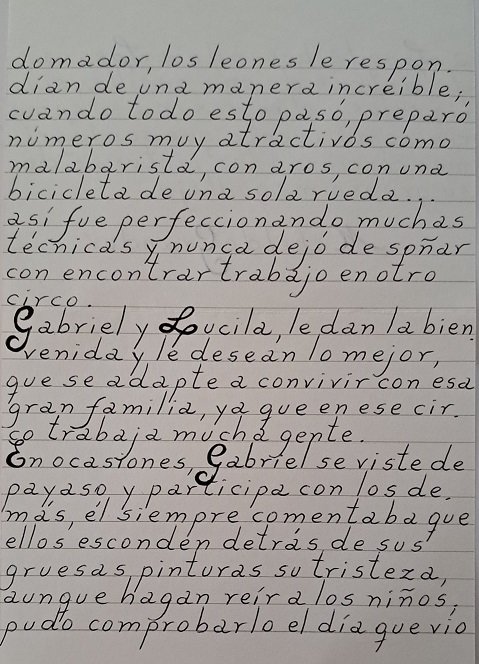 domador, los leones le respon.
dían de una manera increíble;
cuando todo esto pasó, preparó
números muy atractivos como
malabarista, con aros, con una
bicicleta de una sola rueda...
así fue perfeccionando muchas
técnicas y nunca dejó de soñar
con encontrar trabajo en otro
circo.
Gabriel y Lucila, le dan la bien.
venida y le desean lo mejor,
que se adapte a convivir con esa
gran familia, ya que en ese cir.
co trabaja mucha gente.
En ocasiones, Gabriel se viste de
payaso, y participa con los de.
más, él siempre comentaba que
ellos esconden detrás, de sus
gruesas, pinturas su tristeza,
aunque hagan reír a los niños;
pudo comprobarlo el día que vio